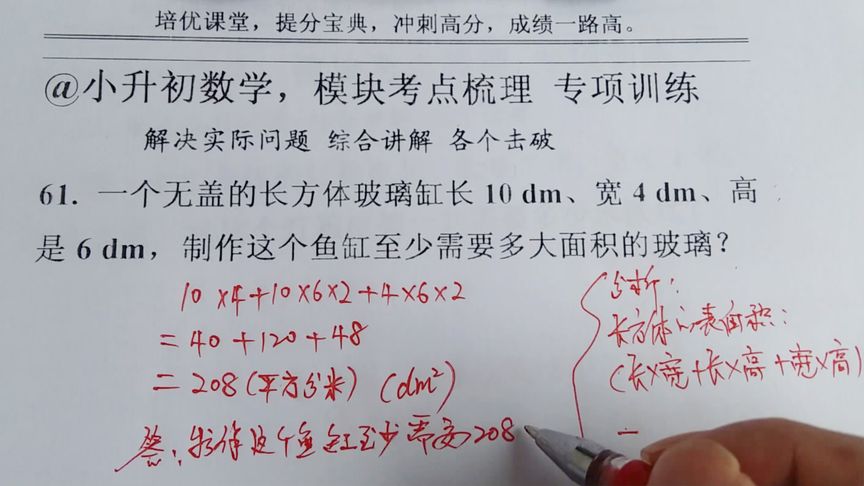 培优课堂，提分宝典，冲刺高分，成绩一路高。
@小升初数学，模块考点梳理 专项训练
解决实际问题 综合讲解 各个击破
61. 一个无盖的长方体玻璃缸长 10 dm、宽 4 dm、高
是 6 dm，制作这个鱼缸至少需要多大面积的玻璃？
10×4+10×6×2+4×6×2
=40+120+48
=208(平方分米) (dm²)
答：制作这个鱼缸至少需要208
分析：
长方体的表面积：
(长×宽+长×高+宽×高)